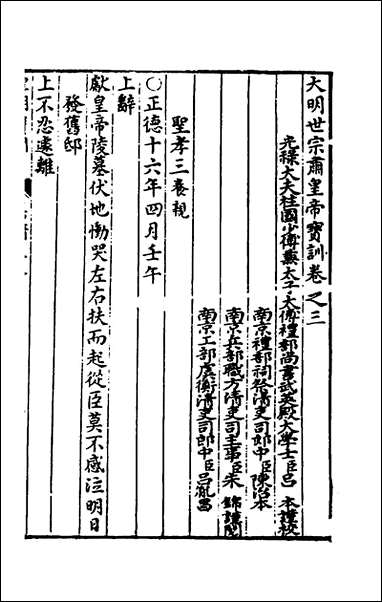 大明世宗肅皇帝寶訓卷之三
光祿大夫柱國少傅兼太子太傅禮部尚書武英殿大學士臣呂 本謹校
南京禮部祠祭清吏司郎中臣陳治本
南京兵部職方清吏司主事臣朱 錦謹閱
南京工部虞衡清吏司郎中臣呂胤昌
聖孝三養親
○正德十六年四月壬午
上辭
獻皇帝陵墓伏地慟哭左右扶而起從臣莫不感泣明日
發舊邸
上不忍遠離